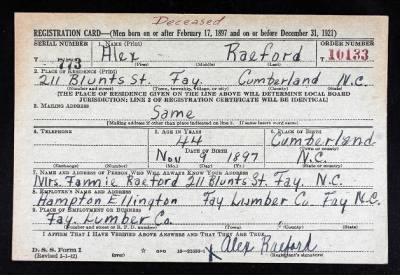 Deceased
REGISTRATION CARD—(Men born on or after February 17, 1897 and on or before December 31, 1921)
SERIAL NUMBER 1. NAME (Print) ORDER NUMBER
T 773 Alex Raeford 10133
(First) (Middle) (Last)
2. PLACE OF RESIDENCE (Print)
211 Blunts St. Fay. Cumberland N.C.
(Number and street) (Town, township, village, or city) (County) (State)
[THE PLACE OF RESIDENCE GIVEN ON THE LINE ABOVE WILL DETERMINE LOCAL BOARD
JURISDICTION; LINE 2 OF REGISTRATION CERTIFICATE WILL BE IDENTICAL]
3. MAILING ADDRESS
Same
[Mailing address if other than place indicated on line 2. If same insert word same]
4. TELEPHONE 5. AGE IN YEARS 6. PLACE OF BIRTH
44 Cumberland
DATE OF BIRTH (Town or county)
Nov 9 1897 N.C.
(Exchange) (Number) (Mo.) (Day) (Yr.) (State or country)
7. NAME AND ADDRESS OF PERSON WHO WILL ALWAYS KNOW YOUR ADDRESS
Mrs. Fannie Raeford 211 Blunts St. Fay. N.C.
8. EMPLOYER'S NAME AND ADDRESS
Hampton Ellington Fay Lumber Co. Fay N.C.
9. PLACE OF EMPLOYMENT OR BUSINESS
Fay. Lumber Co.
(Number and street or R. F. D. number) (Town) (County) (State)
I AFFIRM THAT I HAVE VERIFIED ABOVE ANSWERS AND THAT THEY ARE TRUE.
D. S. S. Form 1
(Revised 1-1-42) (over) Alex Raeford